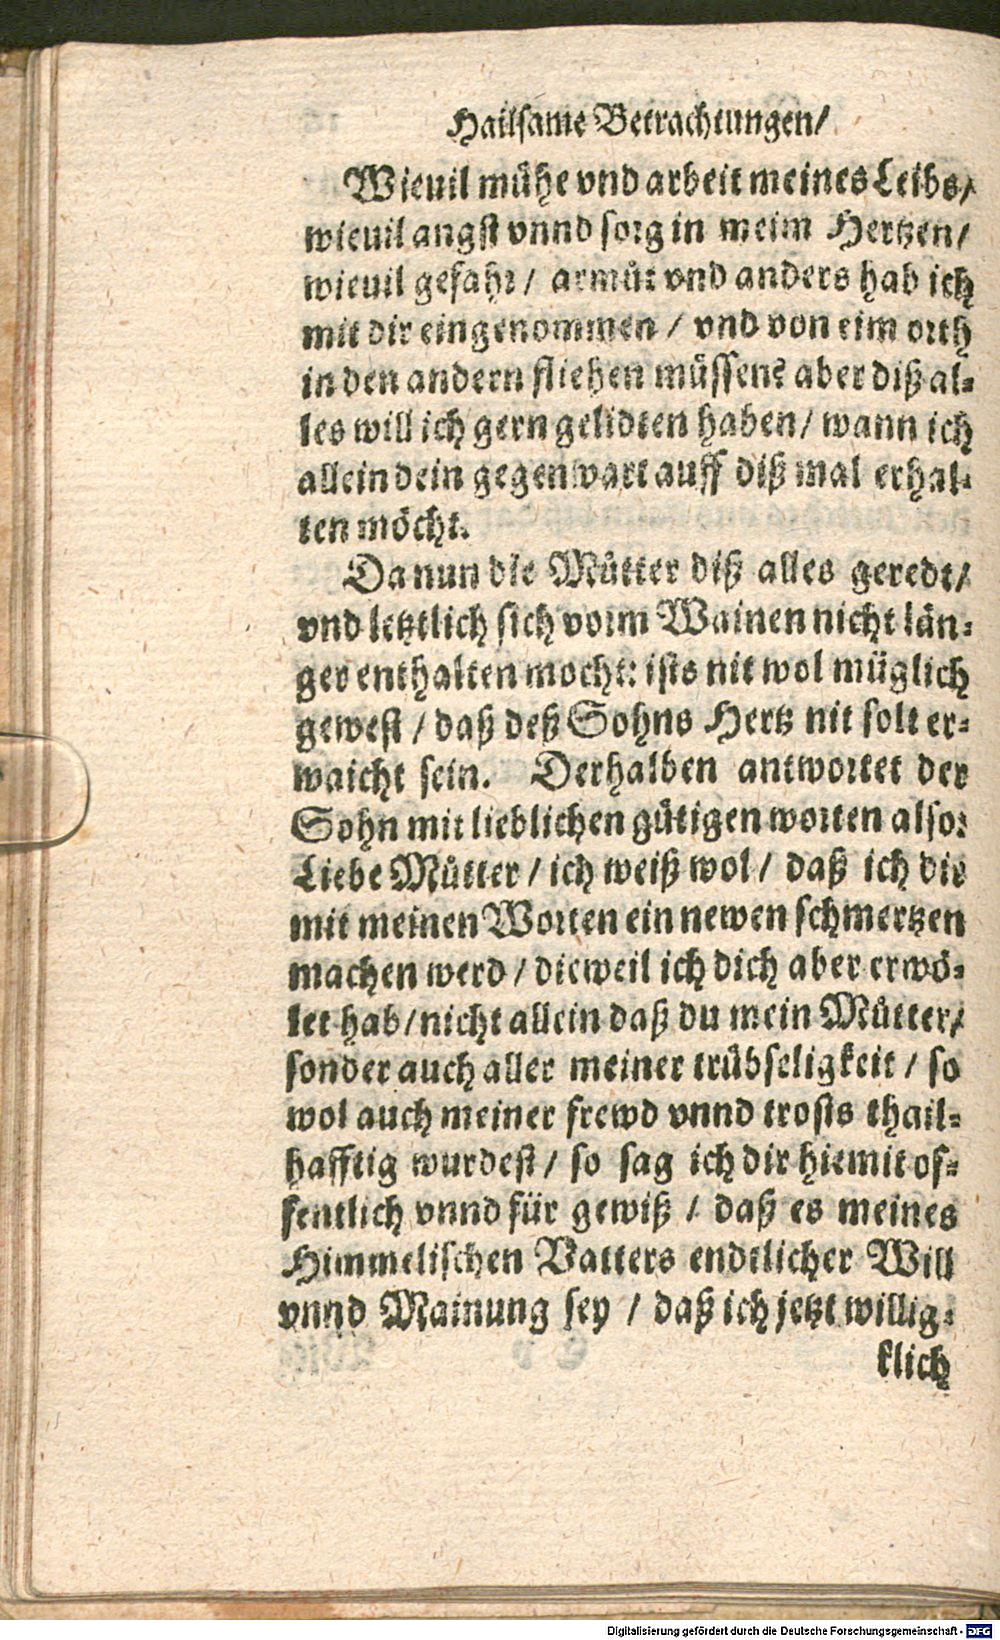 Hailsame Betrachtungen/
Wieuil mühe vnd arbeit meines Leibs/
wieuil angst vnnd sorg in meim Hertzen/
wieuil gefahr / armůt vnd anders hab ich
mit dir eingenommen / vnd von eim orth
in den andern fliehen müssen? aber diß al-
les will ich gern gelidten haben / wann ich
allein dein gegenwart auff diß mal erhal-
ten möcht.
Da nun die Můtter diß alles geredt/
vnd letztlich sich vorm Wainen nicht län-
ger enthalten mocht: ists nit wol müglich
gewest / daß deß Sohns Hertz nit solt er-
waicht sein. Derhalben antwortet der
Sohn mit lieblichen gütigen worten also:
Liebe Můtter / ich weiß wol / daß ich dir
mit meinen Worten ein newen schmertzen
machen werd / dieweil ich dich aber erwö-
let hab / nicht allein daß du mein Můtter/
sonder auch aller meiner trübseligkeit / so
wol auch meiner frewd vnnd trosts thail-
hafftig wurdest / so sag ich dir hiemit of-
fentlich vnnd für gewiß / daß es meines
Himmelischen Vatters endtlicher Will
vnnd Mainung sey / daß ich jetzt willig-
klich
Digitalisierung gefördert durch die Deutsche Forschungsgemeinschaft - DFG